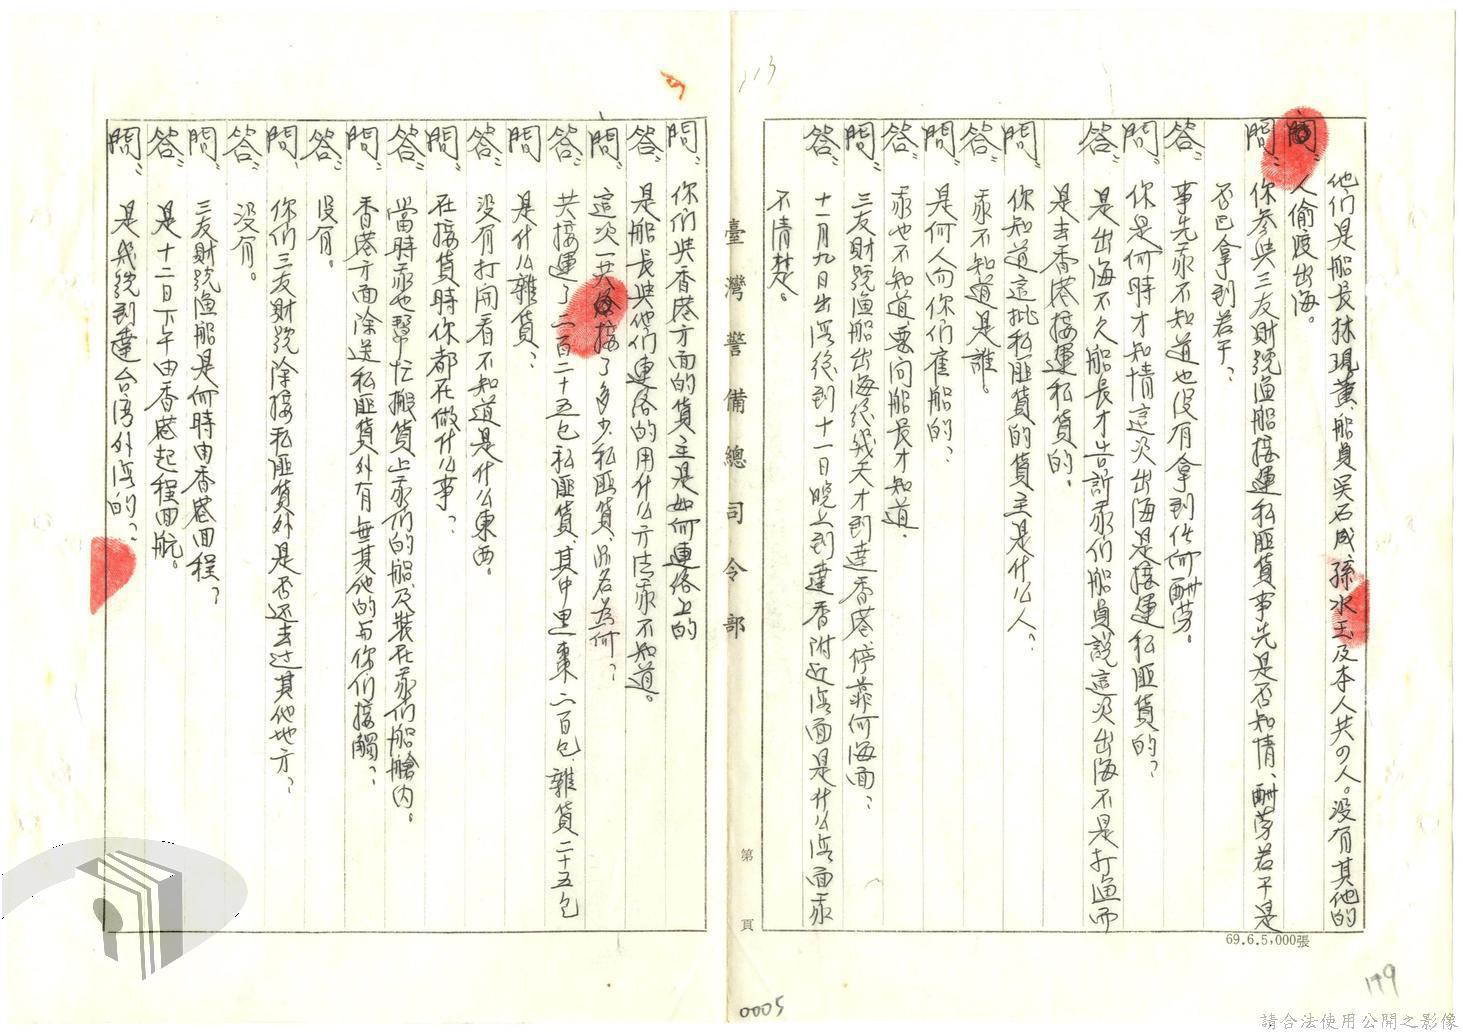 他们是船長林現薰、船員吳石成、孫水玉及本人共4人。没有其他的
人偷渡出海。
問：你參與三友財號漁船接運私匪貨事先是否知情、酬劳若干是
否已拿到若干？
答：事先我不知道也没有拿到任何酬劳。
問：你是何時才知情這次出海是接運私匪貨的？
答：是出海不久船長才告訴我们船員説這次出海不是打漁而
是去香港接運私貨的。
問：你知道這批私匪貨的貨主是什么人？
答：我不知道是誰。
問：是何人向你们雇船的？
答：我也不知道要问船長才知道。
問：三友財號漁船出海後幾天才到達香港、停靠何海面？
答：十一月九日出海後到十一日晚上到達香附近海面是什么海面我
不清楚。
臺灣警備總司令部
第 頁
問：你们與香港方面的貨主是如何連络上的
答：是船長與他们連络的用什么方法我不知道。
問：這次一共接了多少私匪貨、品名為何？
答：共接運了二百二十五包私匪貨、其中黑棗二百包、雜貨二十五包
問：是什么雜貨？
答：没有打開看不知道是什么東西。
問：在接貨時你都在做什么事？
答：當時我也幫忙搬貨上我们的船及裝在我们船艙内。
問：香港方面除送私匪貨外有無其他的与你们接觸？
答：没有。
問：你们三友財號除接私匪貨外是否还去过其他地方？
答：没有。
問：三友財號漁船是何時由香港回程？
答：是十二日下午由香港起程回航。
問：是幾號到達台湾外海的？
69.6.5,000張
0005
119
請合法使用公開之影像